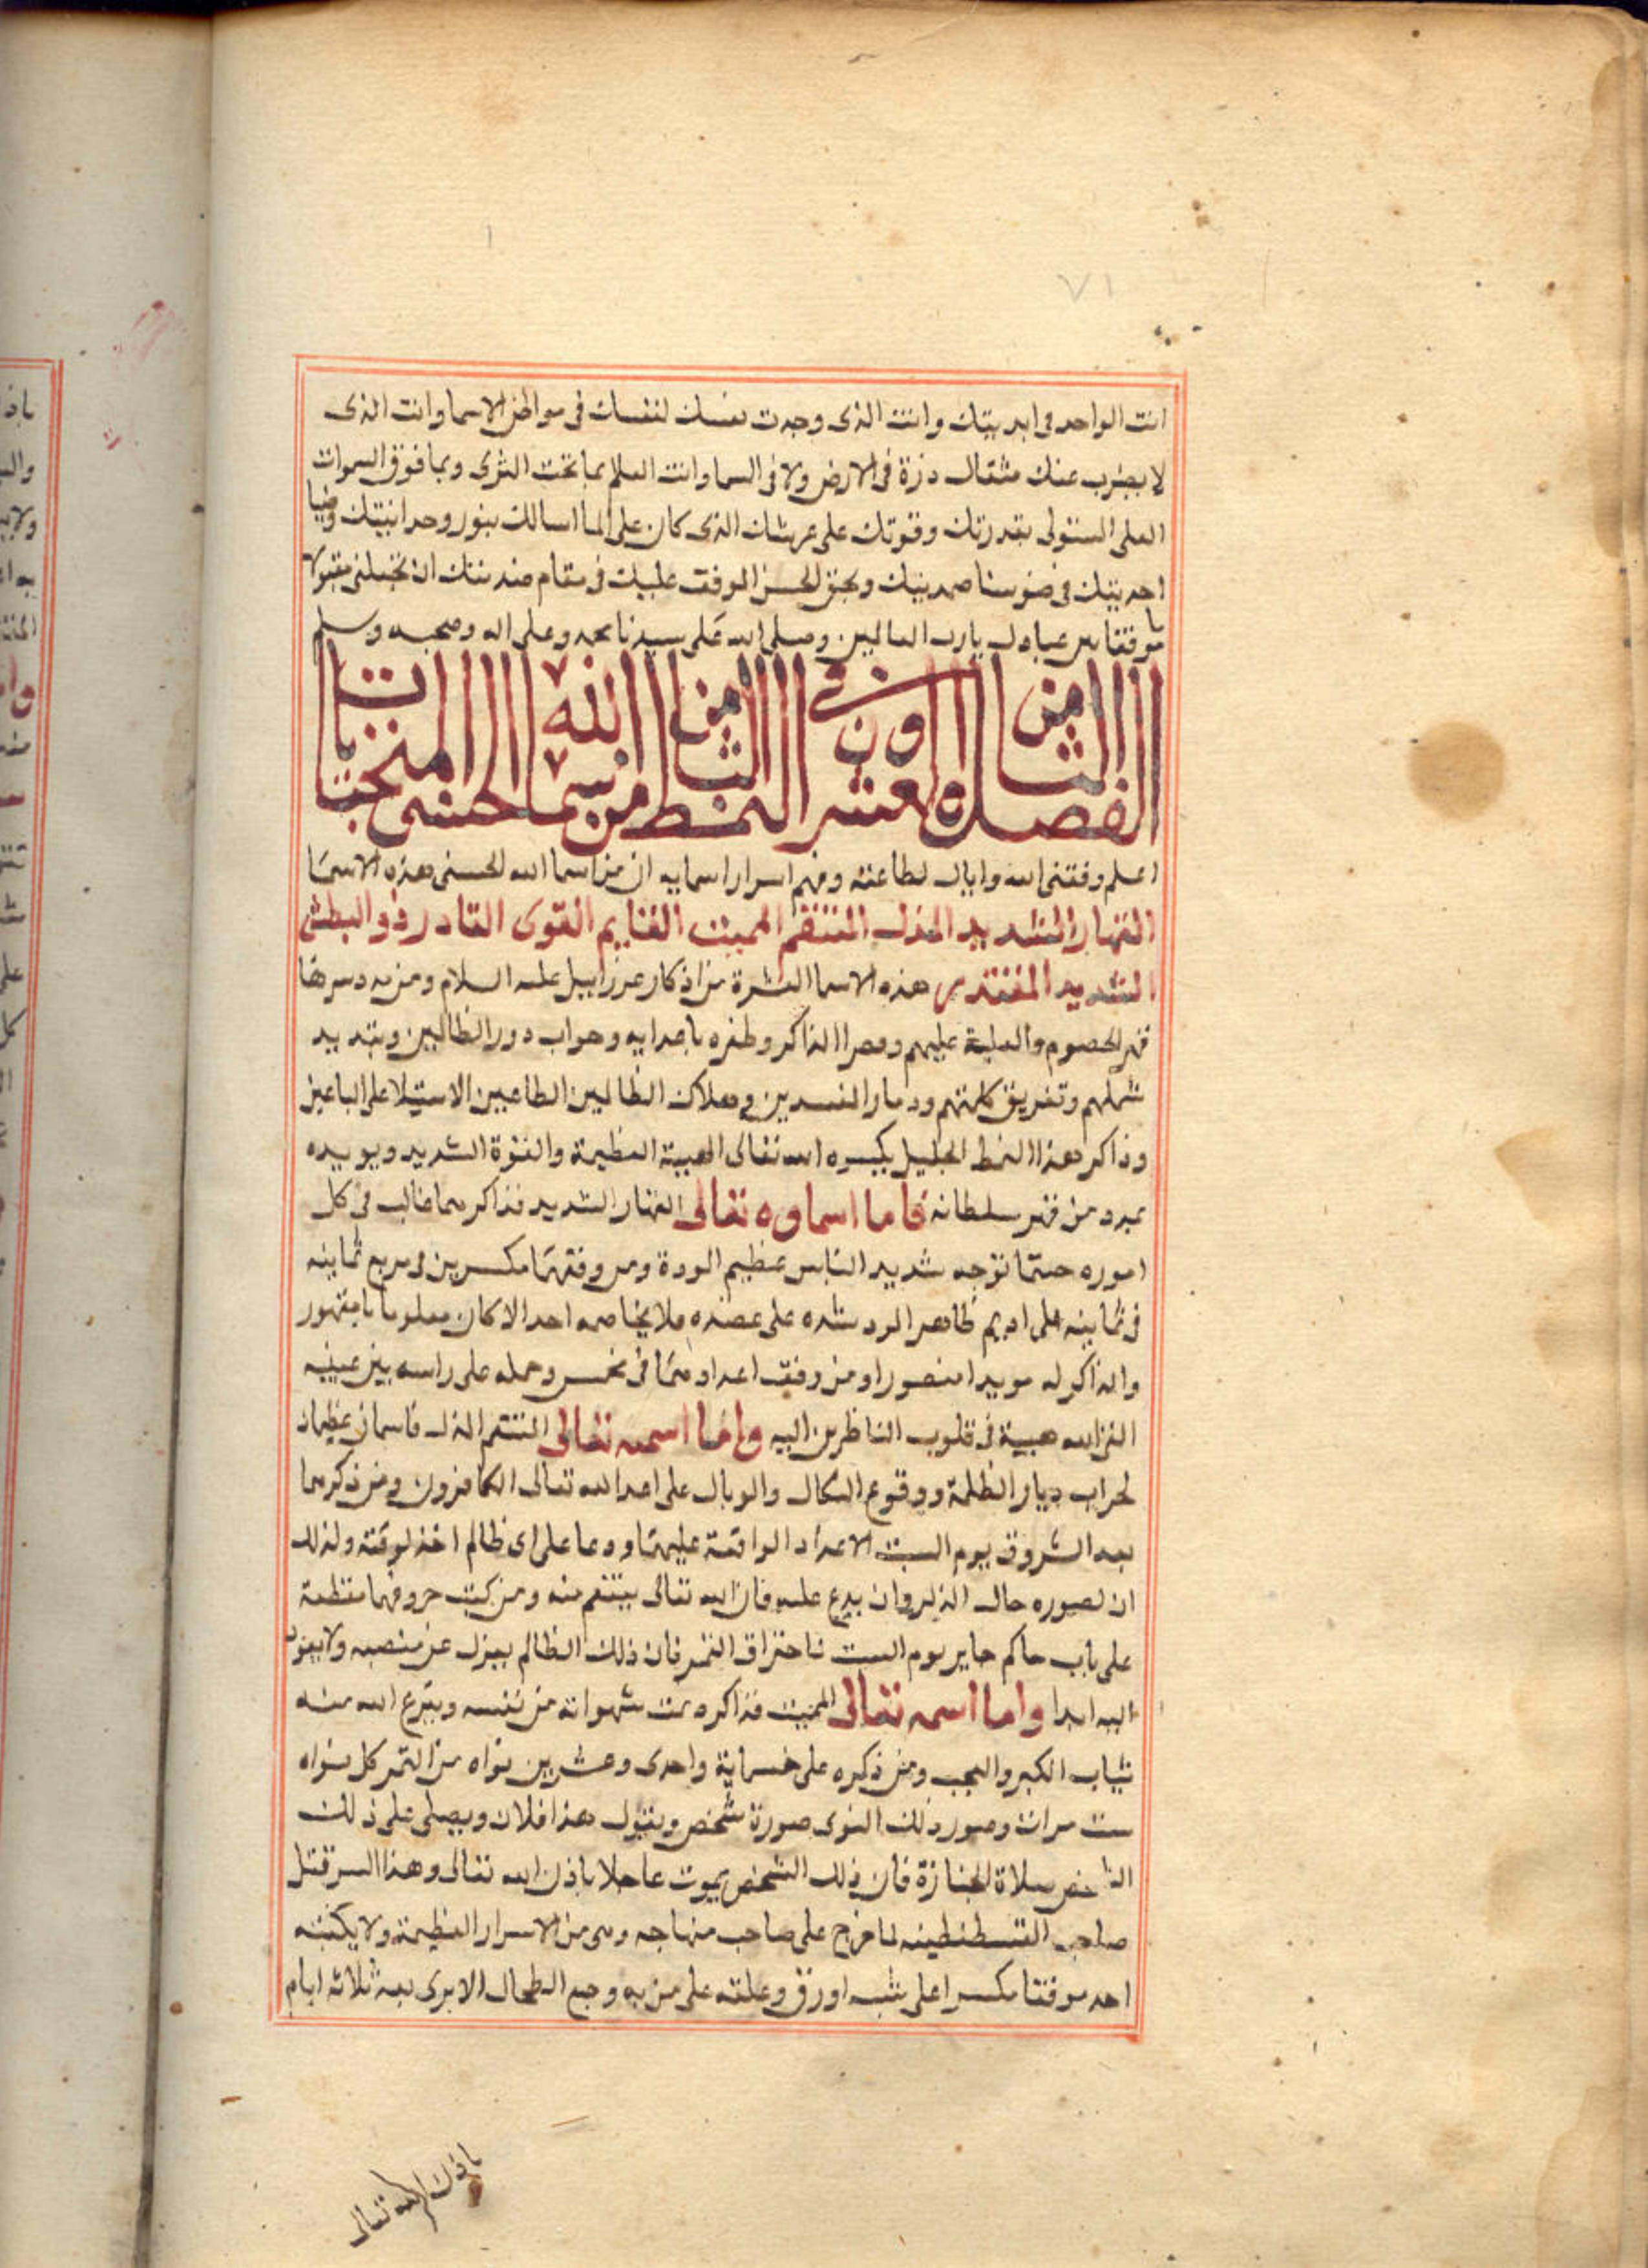 ٧١
انت الواحد فى ابديتك وانت الذى وجدت نفسك لنفسك فى مواطن الاسما وانت الذى
لا يعزب عنك مثقال ذرة فى الارض ولا فى السما وانت العلام بما تحت الثرى وبما فوق السموات
العلى المستولى بقدرتك وقوتك على عرشك الذى كان على الما اسالك بنور وحدانيتك وضيا
احديتك فى ضو سنا صمديتك وبحق الموقف عليك فى مقام ان تجعلنى مقبولا
موفقا بين عبادك يارب العالمين وصلى الله على سيدنا محمد وعلى اله وصحبه وسلم
الفصل الثامن والعشرون فى النمط الثامن من اسما الله الحسنى المنتخبات
اعلم وفقنى الله واياك لطاعته وفهم اسرار اسمايه ان من اسما الله الحسنى هذه الاسما
القهار الشديد المذل المنتقم المميت القايم القوى القادر ذو البطش
الشديد المقتدر هذه الاسما العشرة من اذكار عزراييل عليه السلام ومن يه دسرها
قهر الخصوم والغلبة عليهم الذاكر وظفره باعدايه وخراب دور الظالمين وتبديد
شملهم وتفريق كلمتهم ودمار المفسدين وهلاك الظالمين الطاغيين الاستيلا على الباغين
وذاكر هذا النمط الجليل يكسره الله تعالى الهيبة العظيمة والقوة الشديد ويويده
بمدد من قهر سلطانه فاما اسماوه تعالى القهار الشديد فذاكرهما غالب فى كل
اموره حيثما توجه شديد الباس عظيم ومن وفقهما مكسرين فى مربع ثمانيه
فى ثمانيه على اديم طاهر شده على عضده فلا يخاصمه احد الا كان مغلوبا مقهور
والذاكر له مويدا منصورا ومن وفق اعدادهما فى مخمس وحمله على راسه بين عينيه
القى الله هيبة فى قلوب الناظرين اليه واما اسمه تعالى المنتقم المذل فاسمان عظيمان
لخراب ديار الظلمة ووقوع النكال والوبال على اعدا الله تعالى الكافرون ومن ذكرهما
بعد الشروق يوم السبت الاعداد الواقعة عليهما ودعا على اى ظالم اخذ لوقته ولذلك
ان تصوره حال الذكر وان يدع عليه فان الله تعالى ينتقم منه ومن كتب حروفهما مقطعة
على باب حاكم جاير يوم السبت فان ذلك الظالم يعزل عن منصبه ولا يعود
اليه ابدا واما اسمه تعالى المميت فذاكره تمت شهواته من نفسه وينزع الله منه
ثياب الكبر والعجب ومن ذكره على خمسماية واحدى وعشرين نواه من التمر كل نواه
ست مرات وصور ذلك النوى صورة شخص ويقول هذا فلان ويصلى على ذلك
الشخص صلاة الجنازة فان ذلك الشخص يموت عاجلا باذن الله تعالى وهذا السر قتل
صاحب القسطنطينه لما خرج على صاحب منهاجه وهى من الاسرار العظيمة ولا يكتبه
احد موفقا مكسرا على اورق وعلقه على من به وجع الطحال الا برى بعد ثلاثة ايام
باذن الله تعالى